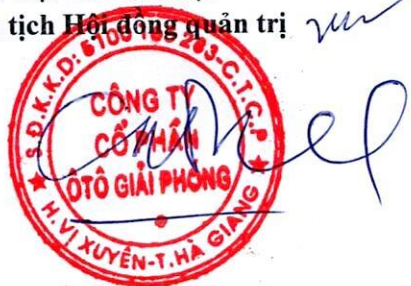 tịch Hội đồng quản trị
S.Đ.K.K.D: 5100 293-C.T.C.P
CÔNG TY
CỔ PHẦN
ÔTÔ GIẢI PHÓNG
H. VỊ XUYÊN-T. HÀ GIANG